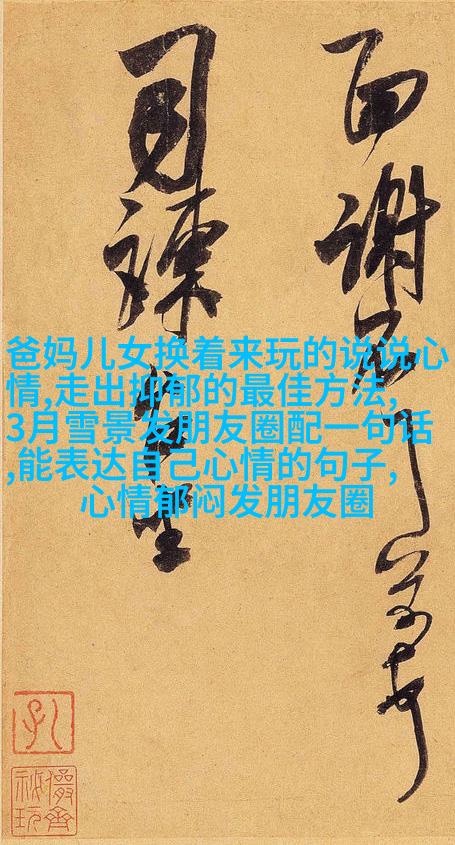 面謝
司諫
爸妈儿女换着来玩的说说心
情,走出抑郁的最佳方法,
3月雪景发朋友圈配一句话
,能表达自己心情的句子,
心情郁闷发朋友圈
儼齋秘玩